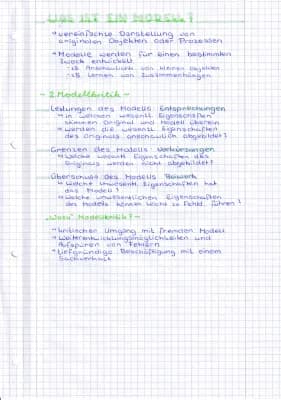 WAS IST EIN MODELL?
→ vereinfachte Darstellung von
originalen Objekten oder Prozessen
→ Modelle werden für einen bestimmten
Zweck entwickelt
- zB Anschaulichk. von kleinen Objekten
- zB Lernen von Zusammenhängen
- 2. Modellkritik -
Leistungen des Modells Entsprechungen
→ in welchen wesentl. Eigenschaften
stimmen Original und Modell überein
→ werden die wesentl. Eigenschaften
des Originals anschaulich abgebildet?
Grenzen des Modells Verkürzungen
→ Welche wesentl. Eigenschaften des
Originals werden nicht abgebildet?
Überschuss des Modells Beiwerk
→ Welche unwesentl. Eigenschaften hat
das Modell?
→ Welche unwesentlichen Eigenschaften
des Modells können leicht zu Fehld. führen?
"Wozu" Modellkritik? -
→ kritischen Umgang mit fremden Modell.
→ Weiterentwicklungsmöglichkeiten und
Aufspüren von Fehlern
→ tiefgründige Beschäftigung mit einem
Sachverhalt